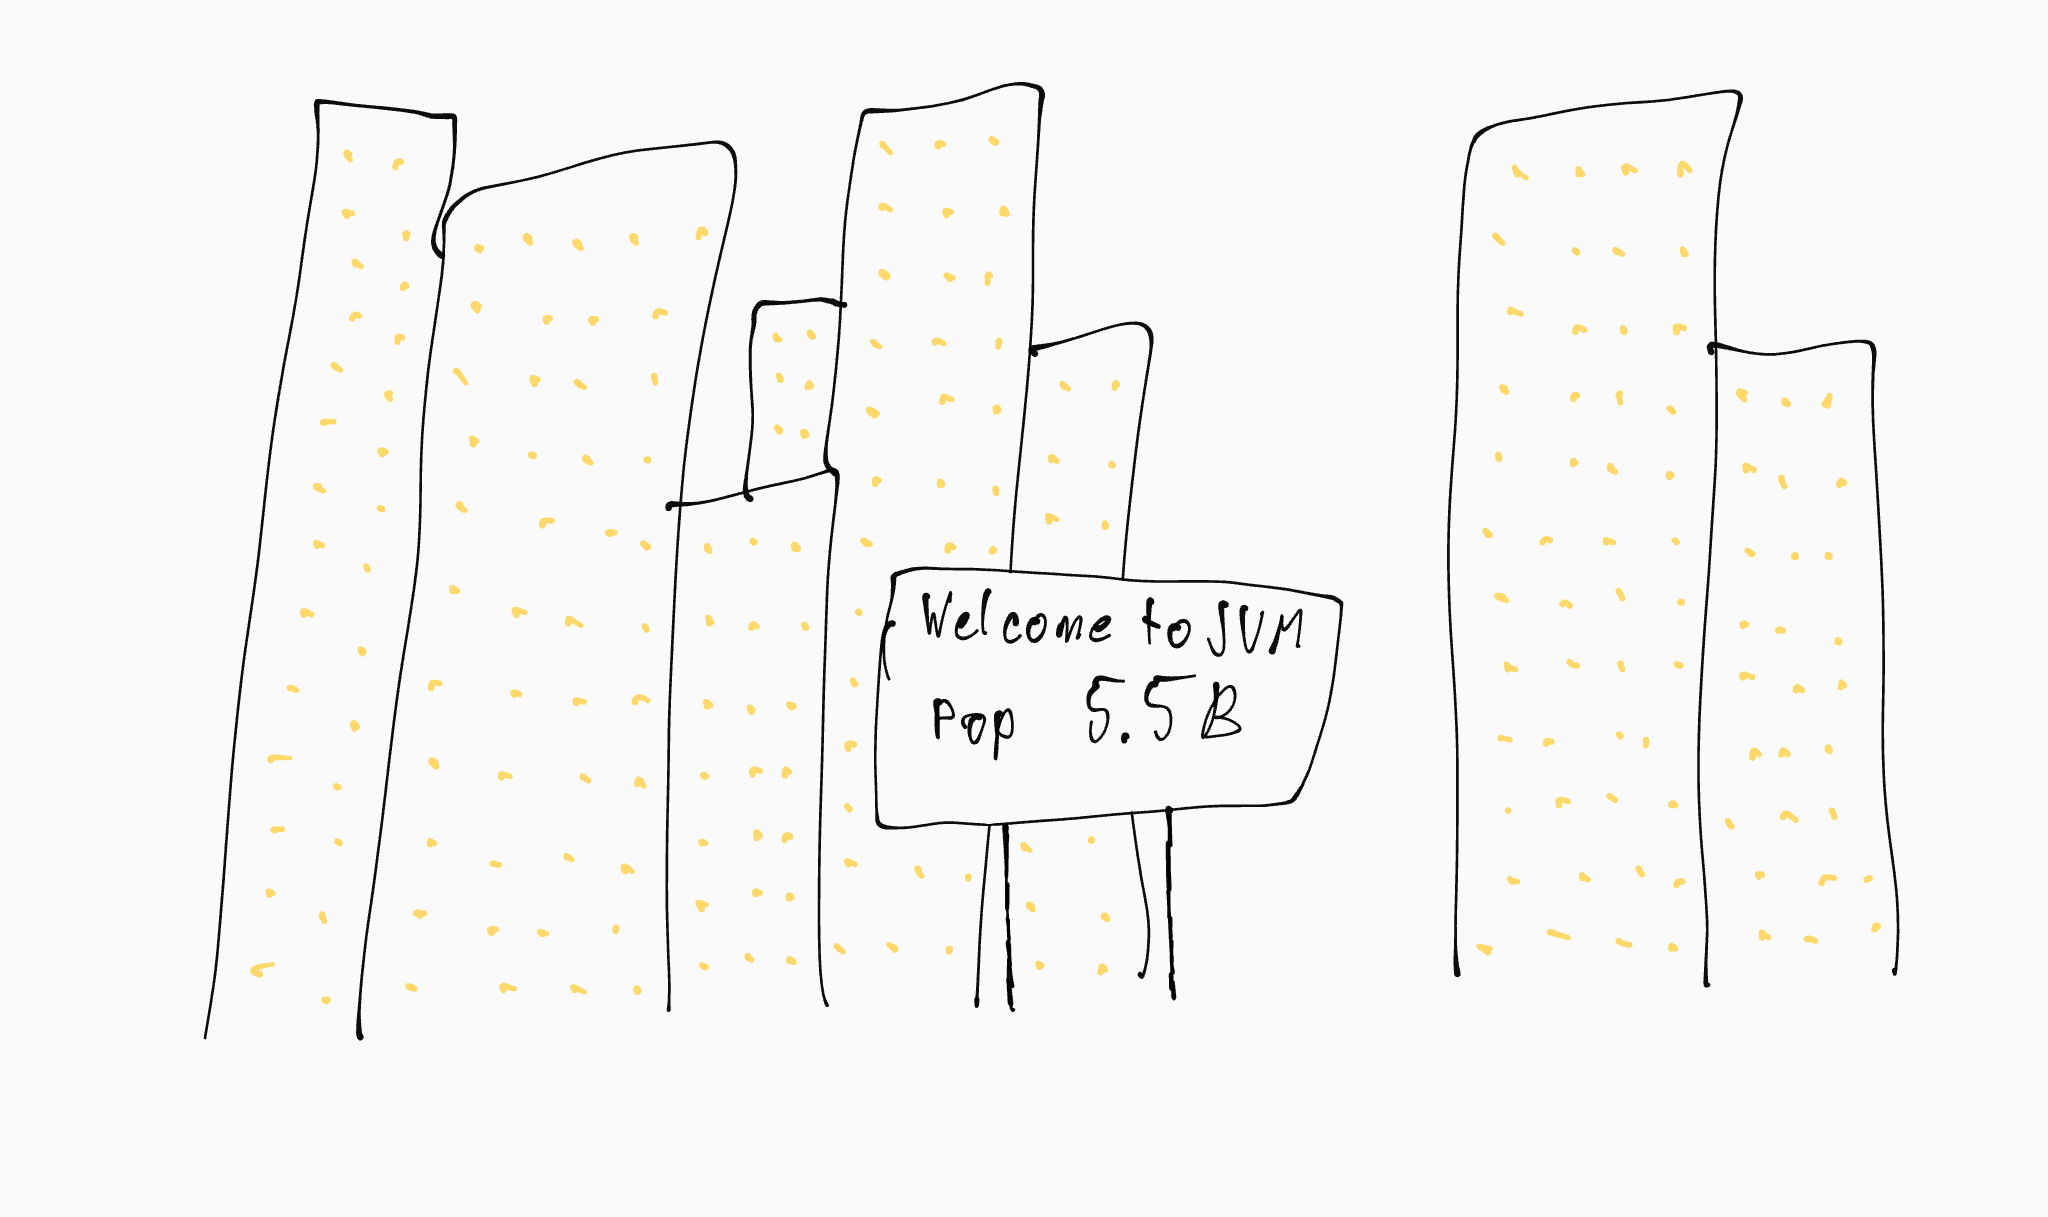 Welcome to JVM
Pop 5.5B